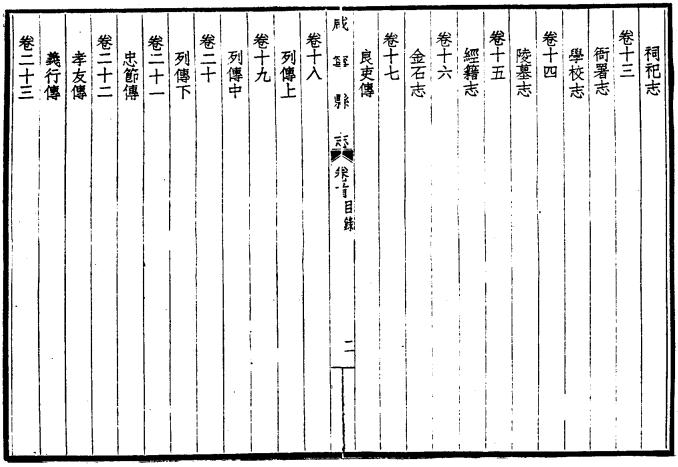 祠祀志
卷十三
衙署志
學校志
卷十四
陵墓志
卷十五
經籍志
卷十六
金石志
卷十七
良吏傳
咸寧縣志
卷首目錄
二
卷十八
列傳上
卷十九
列傳中
卷二十
列傳下
卷二十一
忠節傳
卷二十二
孝友傳
義行傳
卷二十三